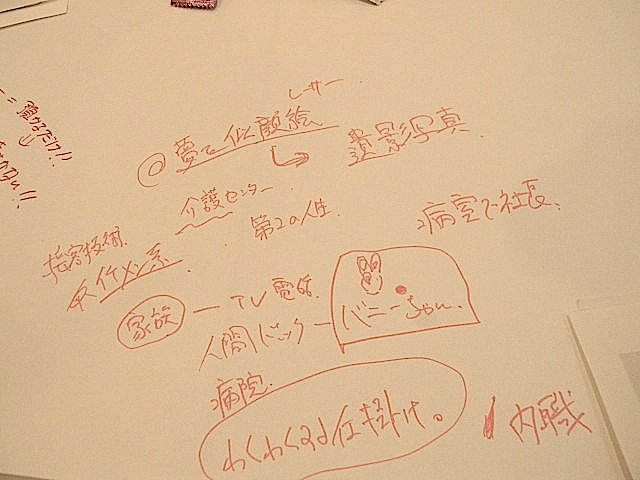 強みだけ!!
レーサー
◎夢で似顔絵
→遺影写真
介護センター
・第2の人生
病室で社長
接客技術
イケメン系
家族 ー TV電話
人間ドック ー バニーちゃん
病院
わくわくする仕掛け。
内職